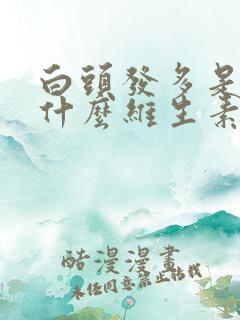 白頭發多是
什麼維生素
酷漫漫畫
未任同意禁止轉載